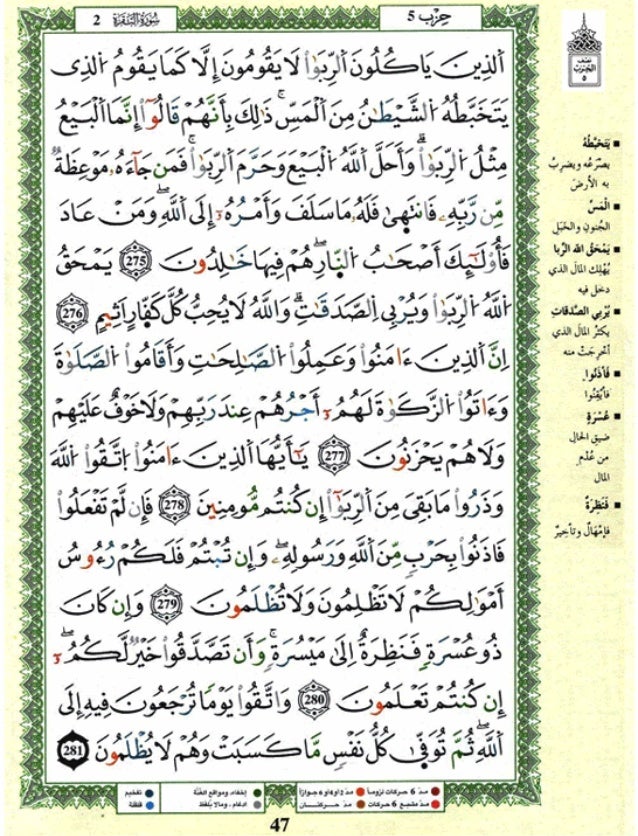 سُورَةُ البَقَرَة 2
حِزْب 5
نصف
الحزب
٥
اَ۬لذِينَ يَاكُلُونَ اَ۬لرِّبَوٰا۟ لَا يَقُومُونَ إِلَّا كَمَا يَقُومُ اُ۬لذِے
يَتَخَبَّطُهُ اُ۬لشَّيْطَٰنُ مِنَ اَ۬لْمَسِّۖ ذَٰلِكَ بِأَنَّهُمْ قَالُوٓا۟ إِنَّمَا اَ۬لْبَيْعُ
مِثْلُ اُ۬لرِّبَوٰا۟ۖ وَأَحَلَّ اَ۬للَّهُ اُ۬لْبَيْعَ وَحَرَّمَ اَ۬لرِّبَوٰا۟ۖ فَمَن جَآءَهُۥ مَوْعِظَةٞ
مِّن رَّبِّهِۦ فَانتَه۪ىٰ فَلَهُۥ مَا سَلَفَ وَأَمْرُهُۥٓ إِلَى اَ۬للَّهِۖ وَمَنْ عَادَ
فَأُوْلَٰٓئِكَ أَصْحَٰبُ اُ۬لنّ۪ارِۖ هُمْ فِيهَا خَٰلِدُونَ 275 يَمْحَقُ
اُ۬للَّهُ اُ۬لرِّبَوٰا۟ وَيُرْبِے اِ۬لصَّدَقَٰتِۖ وَاللَّهُ لَا يُحِبُّ كُلَّ كَفّ۪ارٍ اَثِيمٍ 276
اِنَّ اَ۬لذِينَ ءَامَنُوا۟ وَعَمِلُوا۟ اُ۬لصَّٰلِحَٰتِ وَأَقَامُوا۟ اُ۬لصَّلَوٰةَ
وَءَاتَوُا۟ اُ۬لزَّكَوٰةَ لَهُمُۥٓ أَجْرُهُمْ عِندَ رَبِّهِمْ وَلَا خَوْفٌ عَلَيْهِمْ
وَلَا هُمْ يَحْزَنُونَ 277 يَٰٓأَيُّهَا اَ۬لذِينَ ءَامَنُوا۟ اُ۪تَّقُوا۟ اُ۬للَّهَ
وَذَرُوا۟ مَا بَقِيَ مِنَ اَ۬لرِّبَوٰٓا۟ إِن كُنتُم مُّومِنِينَ 278 فَإِن لَّمْ تَفْعَلُوا۟
فَاذَنُوا۟ بِحَرْبٖ مِّنَ اَ۬للَّهِ وَرَسُولِهِۦۖ وَإِن تُبْتُمْ فَلَكُمْ رُءُوسُ
أَمْوَٰلِكُمْ لَا تَظْلِمُونَ وَلَا تُظْلَمُونَ 279 وَإِن كَانَ
ذُو عُسْرَةٖ فَنَظِرَةٌ اِلَىٰ مَيْسُرَةٖۖ وَأَن تَصَّدَّقُوا۟ خَيْرٞ لَّكُمُۥٓ
إِن كُنتُمْ تَعْلَمُونَ 280 وَاتَّقُوا۟ يَوْماٗ تُرْجَعُونَ فِيهِ إِلَى
اَ۬للَّهِۖ ثُمَّ تُوَفّ۪ىٰ كُلُّ نَفْسٖ مَّا كَسَبَتْ وَهُمْ لَا يُظْلَمُونَ 281
■ يَتَخَبَّطُهُ
يصرَعُه ويضرِبُ
به الأرضَ
■ الْمَسِّ
الجُنونِ والخَبَلِ
■ يَمْحَقُ الله الرِّبا
يُهْلِكُ المالَ الذي
دخل فيه
■ يُرْبِي الصَّدَقاتِ
يكثّرُ المالَ الذي
أُخرِجَتْ منه
■ فَأذَنُوا
فأيْقِنُوا
■ عُسْرَةٍ
ضيق الحالِ
من عُدْمِ
المال
■ فَنَظِرَةٌ
فإمْهَالٌ وتأخِيرٌ
مدّ 6 حركات لزوماً
مدّ 2 أو 4 أو 6 جوازاً
إخفاء، ومواقع الغُنَّة
تفخيم
مدّ مشبع 6 حركات
مدّ حركتان
ادغام، ومالا يُلفظ
قلقلة
47